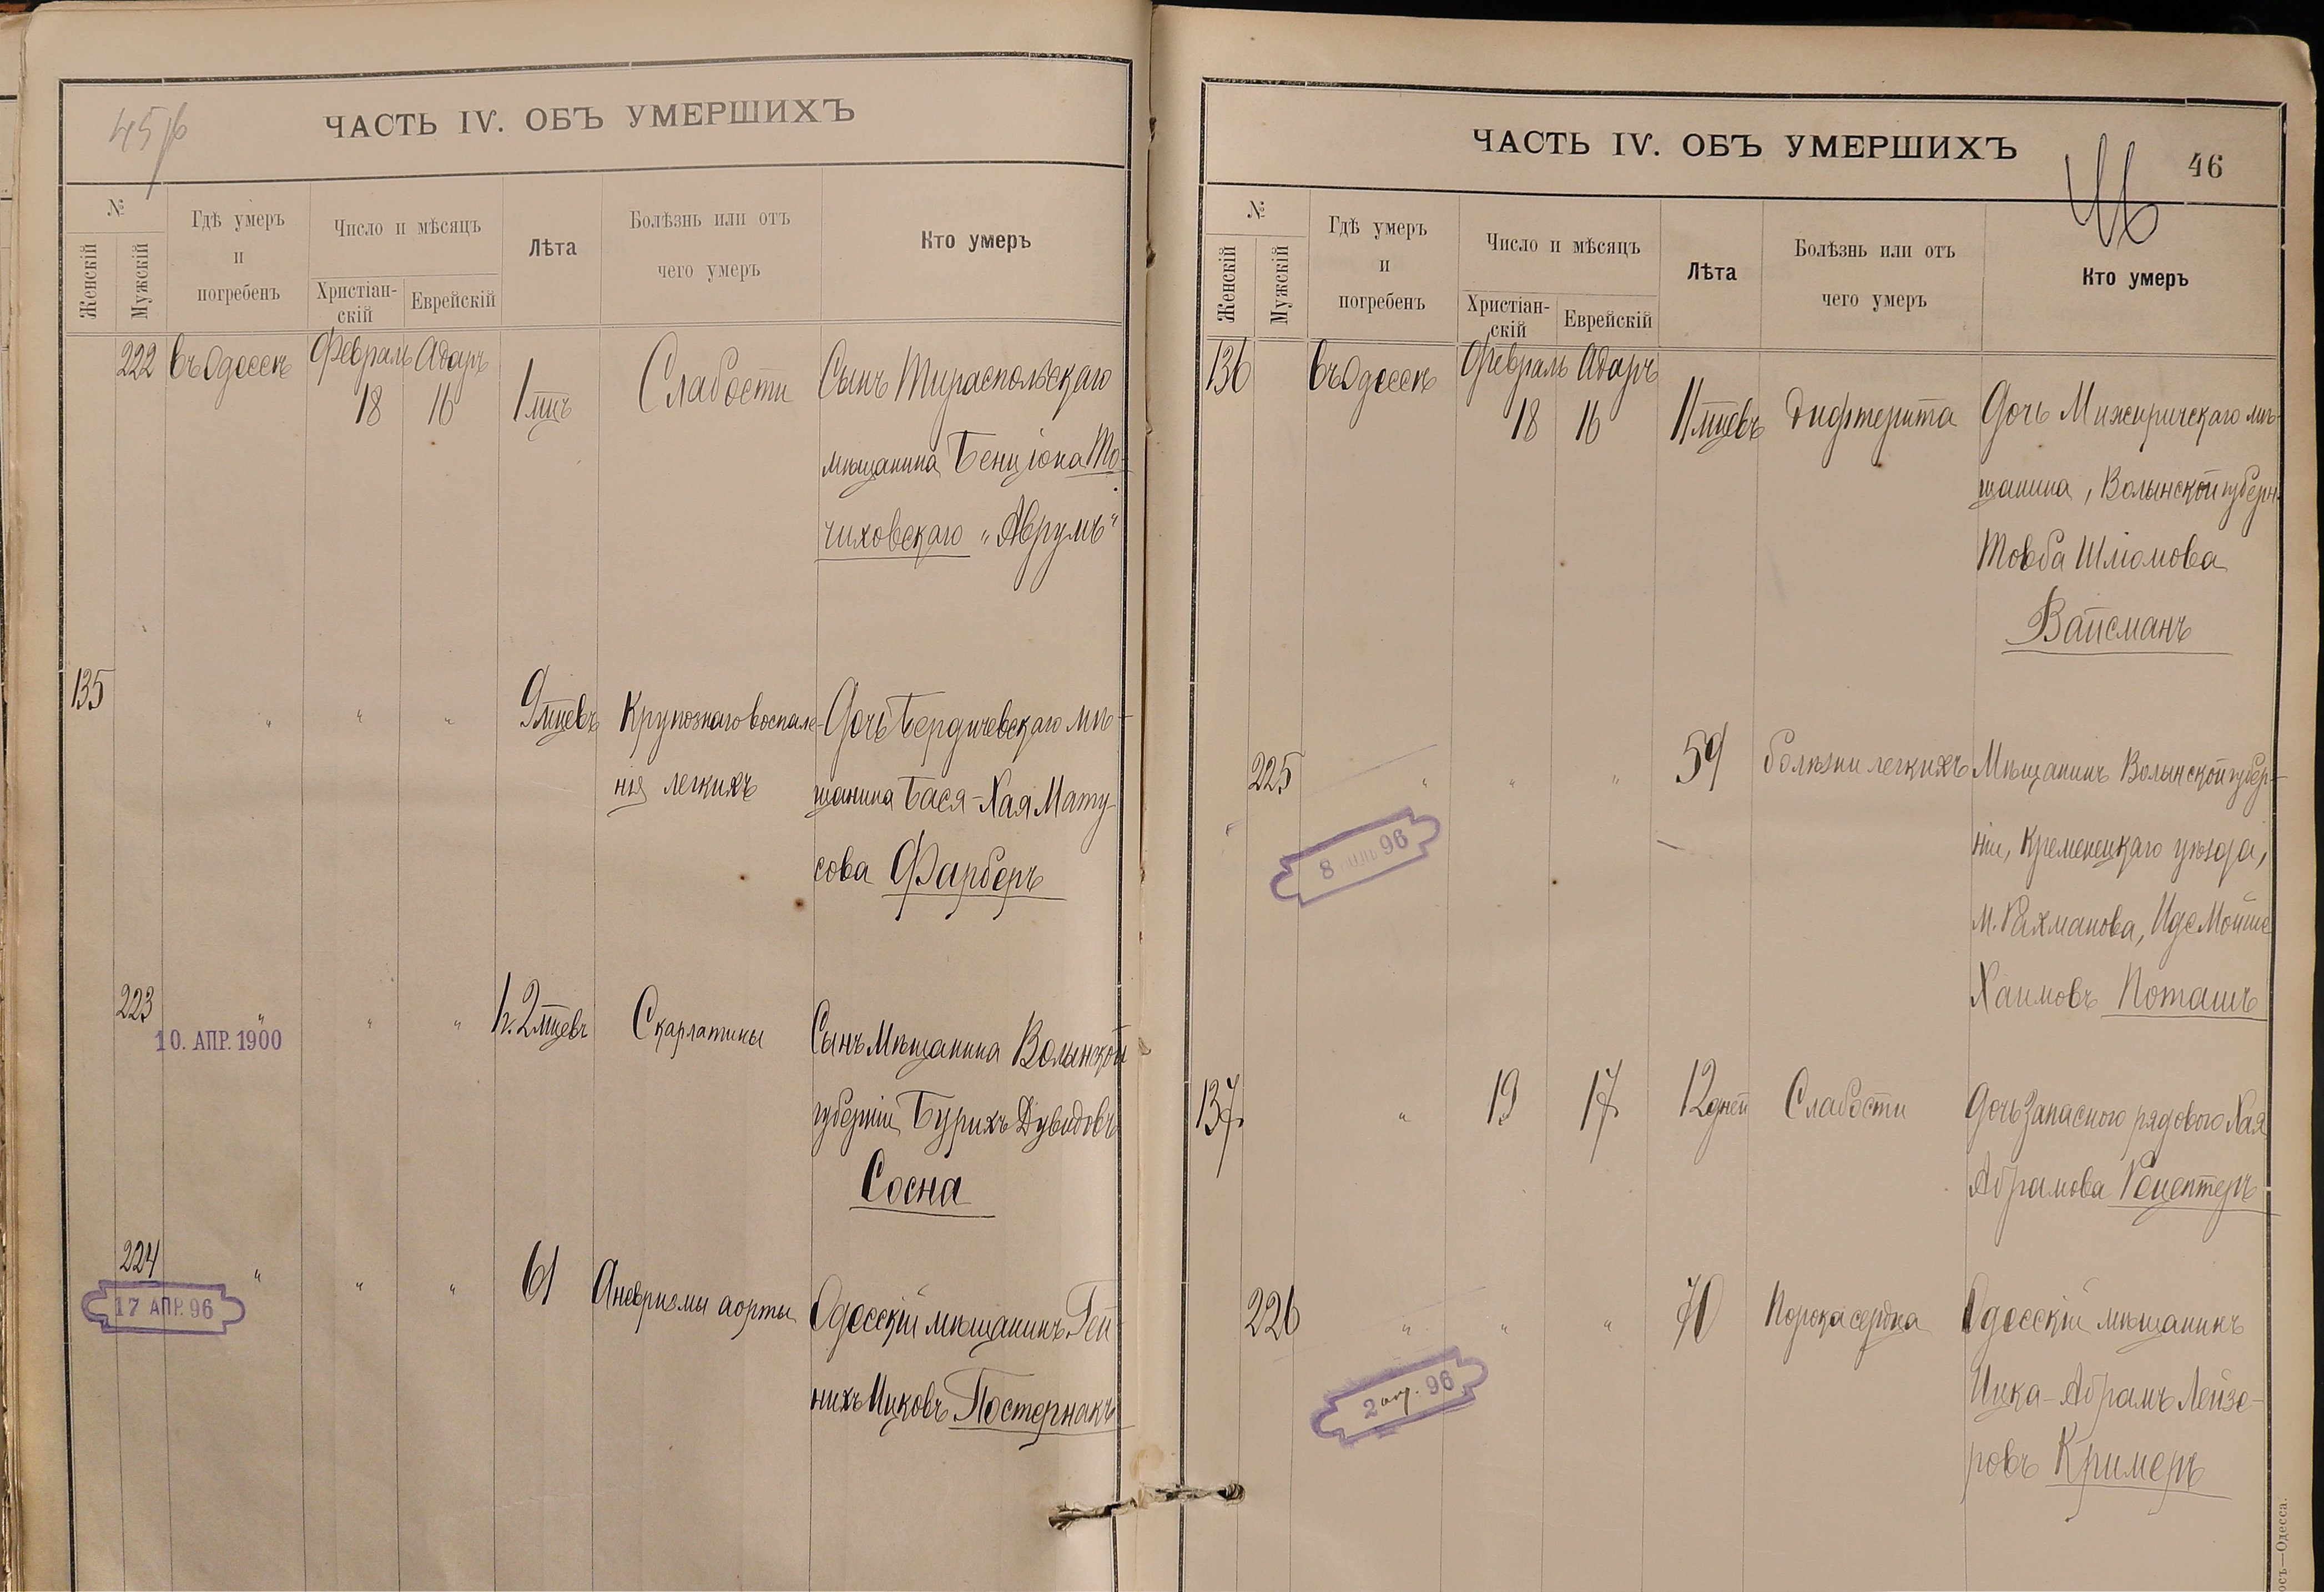 45 об
ЧАСТЬ IV. ОБЪ УМЕРШИХЪ
№
Женскій
Мужскій
Гдѣ умеръ
и
погребенъ
Число и мѣсяцъ
Христіан-
скій
Еврейскій
Лѣта
Болѣзнь или отъ
чего умеръ
Кто умеръ
222 въ Одессѣ Февраль Адаръ
18 16 1 мцъ Слабости Сынъ Тираспольскаго
мѣщанина Бенціона То-
чиховскаго „Аврумъ“
135 " " " 9 мцевъ Крупознаго воспале- Дочь Бердичевскаго мѣ-
нія легкихъ щанина Бася-Хая Мату-
сова Фарберъ
223 " " " 1г. 2 мцевъ Скарлатины Сынъ Мѣщанина Волынской
10. АПР. 1900
губерніи Бурихъ Дувидовъ
Сосна
224 " " " 61 Аневризмы аорты Одесскій мѣщанинъ Гей-
17 АПР. 96
нихъ Ицковъ Постернакъ
ЧАСТЬ IV. ОБЪ УМЕРШИХЪ
46
46
№
Женскій
Мужскій
Гдѣ умеръ
и
погребенъ
Число и мѣсяцъ
Христіан-
скій
Еврейскій
Лѣта
Болѣзнь или отъ
чего умеръ
Кто умеръ
136 въ Одессѣ Февраль Адаръ
18 16 11 мцевъ Дифтерита Дочь Мижиричскаго мѣ-
щанина, Волынской губерн.
Товба Шліомова
Вайсманъ
225 " " " 59 болѣзни легкихъ Мѣщанинъ Волынской губер-
8 96
ніи, Кременецкаго уѣзда,
м. Рахманова, Иде Мойше
Хаимовъ Поташъ
137 " 19 17 12 дней Слабости Дочь Запаснаго рядового Хая
Абрамова Рецептеръ
226 " " " 70 Порока сердца Одесскій мѣщанинъ
2 апр. 96
Ицка-Абрамъ Лейзе-
ровъ Кримеръ
Одесса.